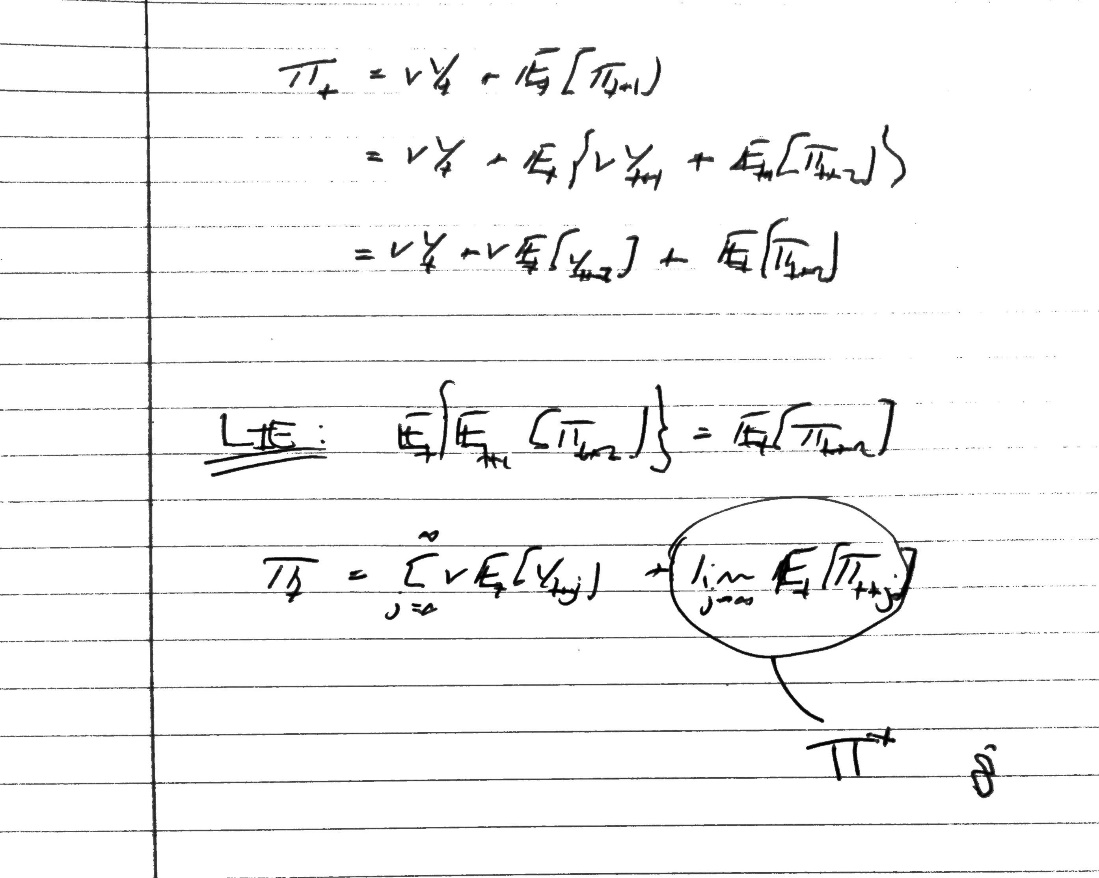 π_t = νY_t + 𝔼_t[π_{t+1}]
= νY_t + 𝔼_t{νY_{t+1} + 𝔼_{t+1}[π_{t+2}]}
= νY_t + ν𝔼_t[Y_{t+1}] + 𝔼_t[π_{t+2}]
LIE: 𝔼_t{𝔼_{t+1}[π_{t+2}]} = 𝔼_t[π_{t+2}]
π_t = Σ_{j=0}^∞ ν𝔼_t[Y_{t+j}] + lim_{j→∞} 𝔼_t[π_{t+j}]
π*